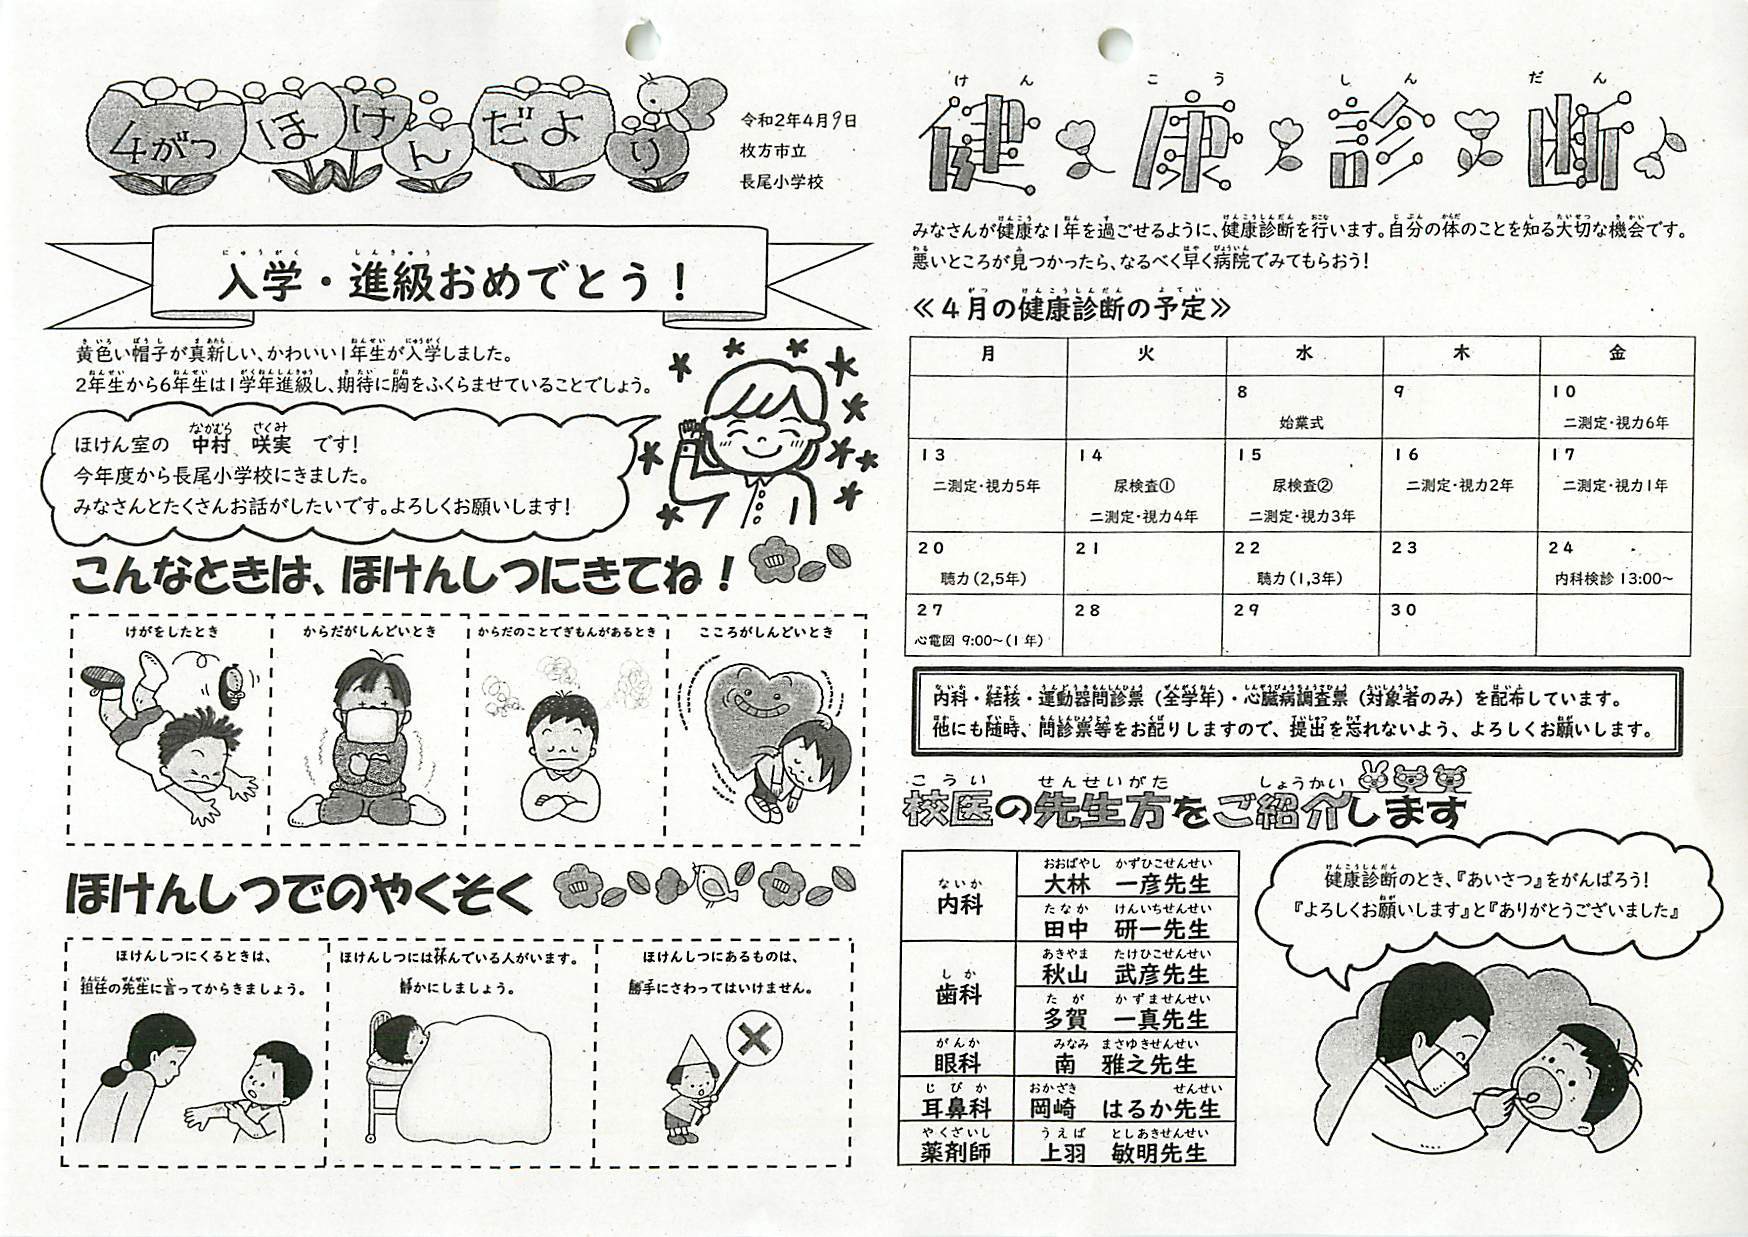 4がつ ほけんだより
令和2年4月9日
枚方市立
長尾小学校
にゅうがく しんきゅう
入学・進級おめでとう!
黄色い帽子が真新しい、かわいい1年生が入学しました。
2年生から6年生は1学年進級し、期待に胸をふくらませていることでしょう。
なかむら さくみ
ほけん室の 中村 咲実 です!
今年度から長尾小学校にきました。
みなさんとたくさんお話がしたいです。よろしくお願いします!
こんなときは、ほけんしつにきてね!
けがをしたとき
からだがしんどいとき
からだのことでぎもんがあるとき
こころがしんどいとき
ほけんしつでのやくそく
ほけんしつにくるときは、
担任の先生に言ってからきましょう。
ほけんしつには休んでいる人がいます。
静かにしましょう。
ほけんしつにあるものは、
勝手にさわってはいけません。
けん こう しん だん
健康診断
みなさんが健康な1年を過ごせるように、健康診断を行います。自分の体のことを知る大切な機会です。
悪いところが見つかったら、なるべく早く病院でみてもらおう!
がつ けんこうしんだん よてい
≪4月の健康診断の予定≫
月 火 水 木 金
8 9 10
始業式 二測定・視力6年
13 14 15 16 17
二測定・視力5年 尿検査① 尿検査② 二測定・視力2年 二測定・視力1年
二測定・視力4年 二測定・視力3年
20 21 22 23 24
聴力(2,5年) 聴力(1,3年) 内科検診 13:00~
27 28 29 30
心電図 9:00~(1年)
内科・結核・運動器問診票(全学年)・心臓病調査票(対象者のみ)を配布しています。
他にも随時、問診票等をお配りしますので、提出を忘れないよう、よろしくお願いします。
こうい せんせいがた しょうかい
校医の先生方をご紹介します
ないか
内科
おおばやし かずひこせんせい
大林 一彦先生
たなか けんいちせんせい
田中 研一先生
しか
歯科
あきやま たけひこせんせい
秋山 武彦先生
たが かずませんせい
多賀 一真先生
がんか
眼科
みなみ まさゆきせんせい
南 雅之先生
じびか
耳鼻科
おかざき せんせい
岡崎 はるか先生
やくざいし
薬剤師
うえば としあきせんせい
上羽 敏明先生
けんこうしんだん
健康診断のとき、『あいさつ』をがんばろう!
『よろしくお願いします』と『ありがとうございました』